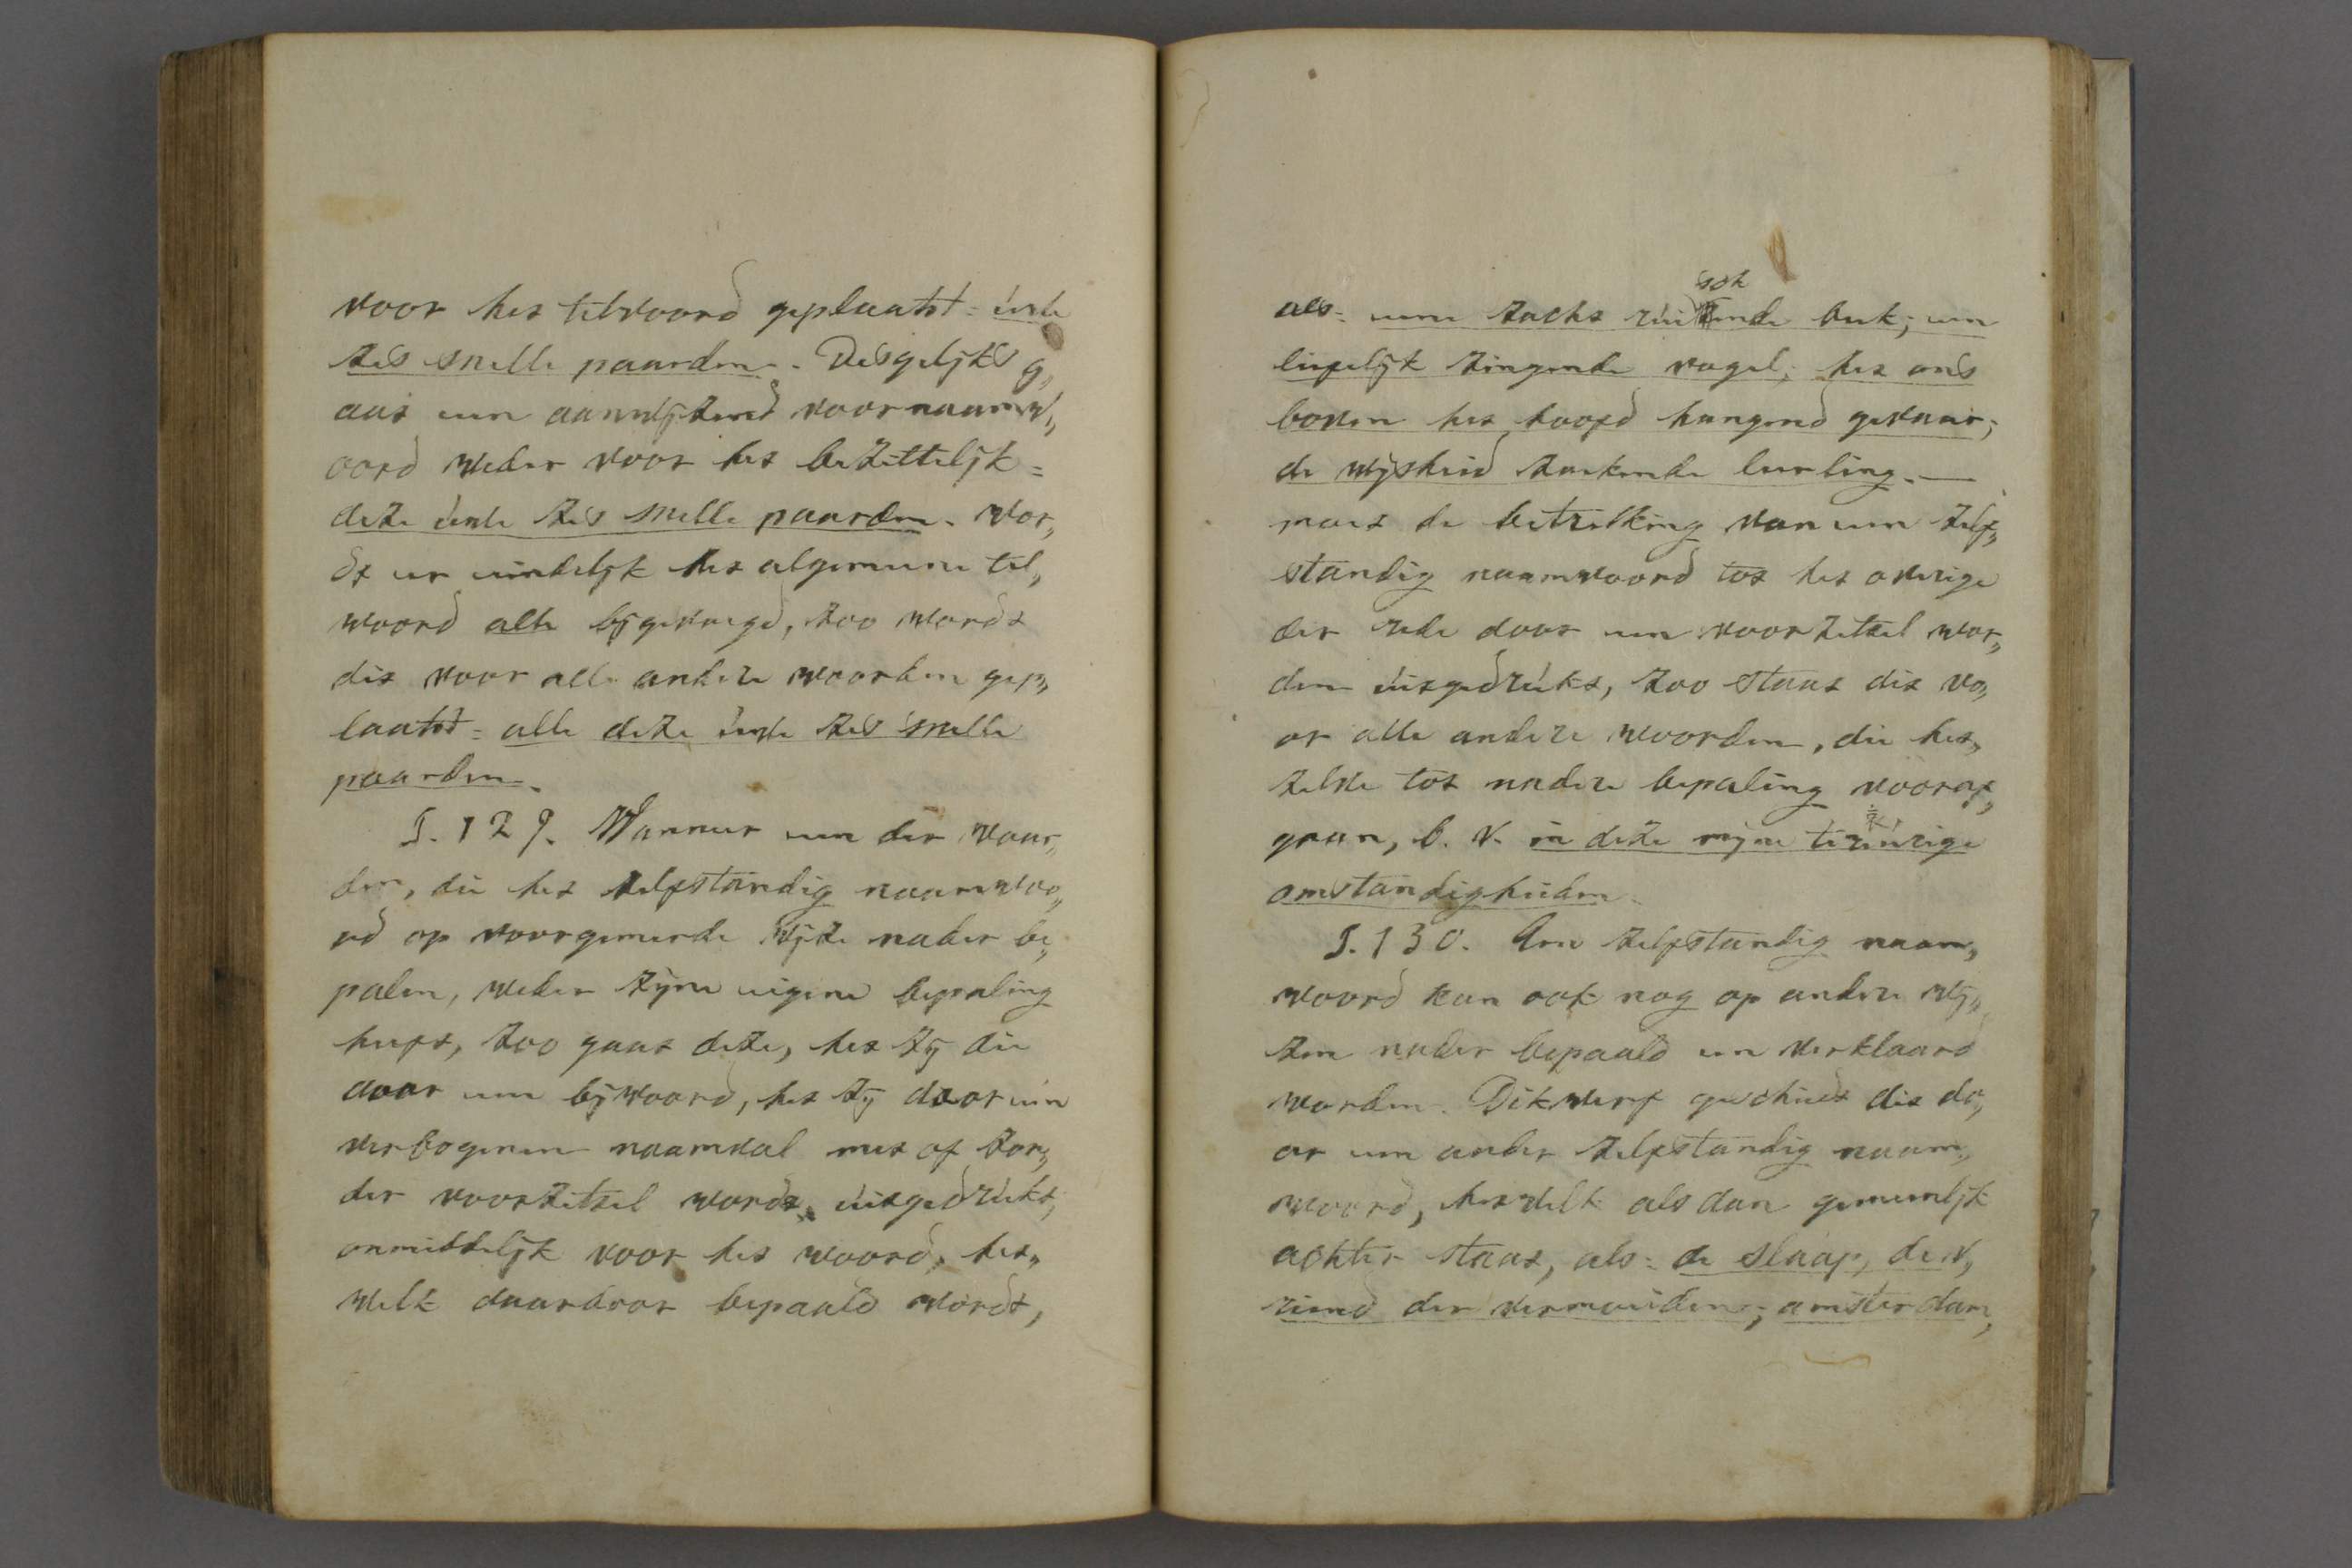 voor het telwoord geplaatst: uwe
zes snelle paarden. Desgelijks g„
aat een aanwijzend voornaamw„
oord weder voor het bezittelijk =
deze uwe zes snelle paarden. Wor„
dt er eindelijk het algemeene tel„
woord alle bijgevoegd, zoo wordt
dit voor alle andere woorden gep„
laatst = alle deze uwe zes snelle
paarden.
§. 129. Wanneer een der woor„
den, die het zelfstandig naamwoo„
rd op voorgemeerde wijze nader be„
palen, weder zijne eigene bepaling
heeft, zoo gaat deze, het zij die
door een bijwoord, het zij door een
verbogenen naamval met of zon„
der voorzetsel wordt uitgedrukt,
onmiddelijk voor het woord, het„
welk daardoor bepaald wordt,
als: eene zacht ruisschende beek; een
liefelijk zingende vogel; het ons
boven het hoofd hangend gevaar;
de wijsheid zoekende leerling. —
moet de betrekking van een zelf„
standig naamwoord tot het overige
der rede door een voorzetsel wor„
den uitgedrukt, zoo staat dit vo„
or alle andere woorden, die het„
zelve tot nadere bepaling vooraf„
gaan, b. v. in deze mijne treurige
omstandigheden.
§. 130. Een zelfstandig naam„
woord kan ook nog op andere wij„
zen nader bepaald en verklaard
worden. Dikwerf geschiedt dit do„
or een ander zelfstandig naam„
woord, hetwelk als dan gemeenlijk
achter staat, als: de slaap, de v„
riend der vermoeiden; amsterdam,